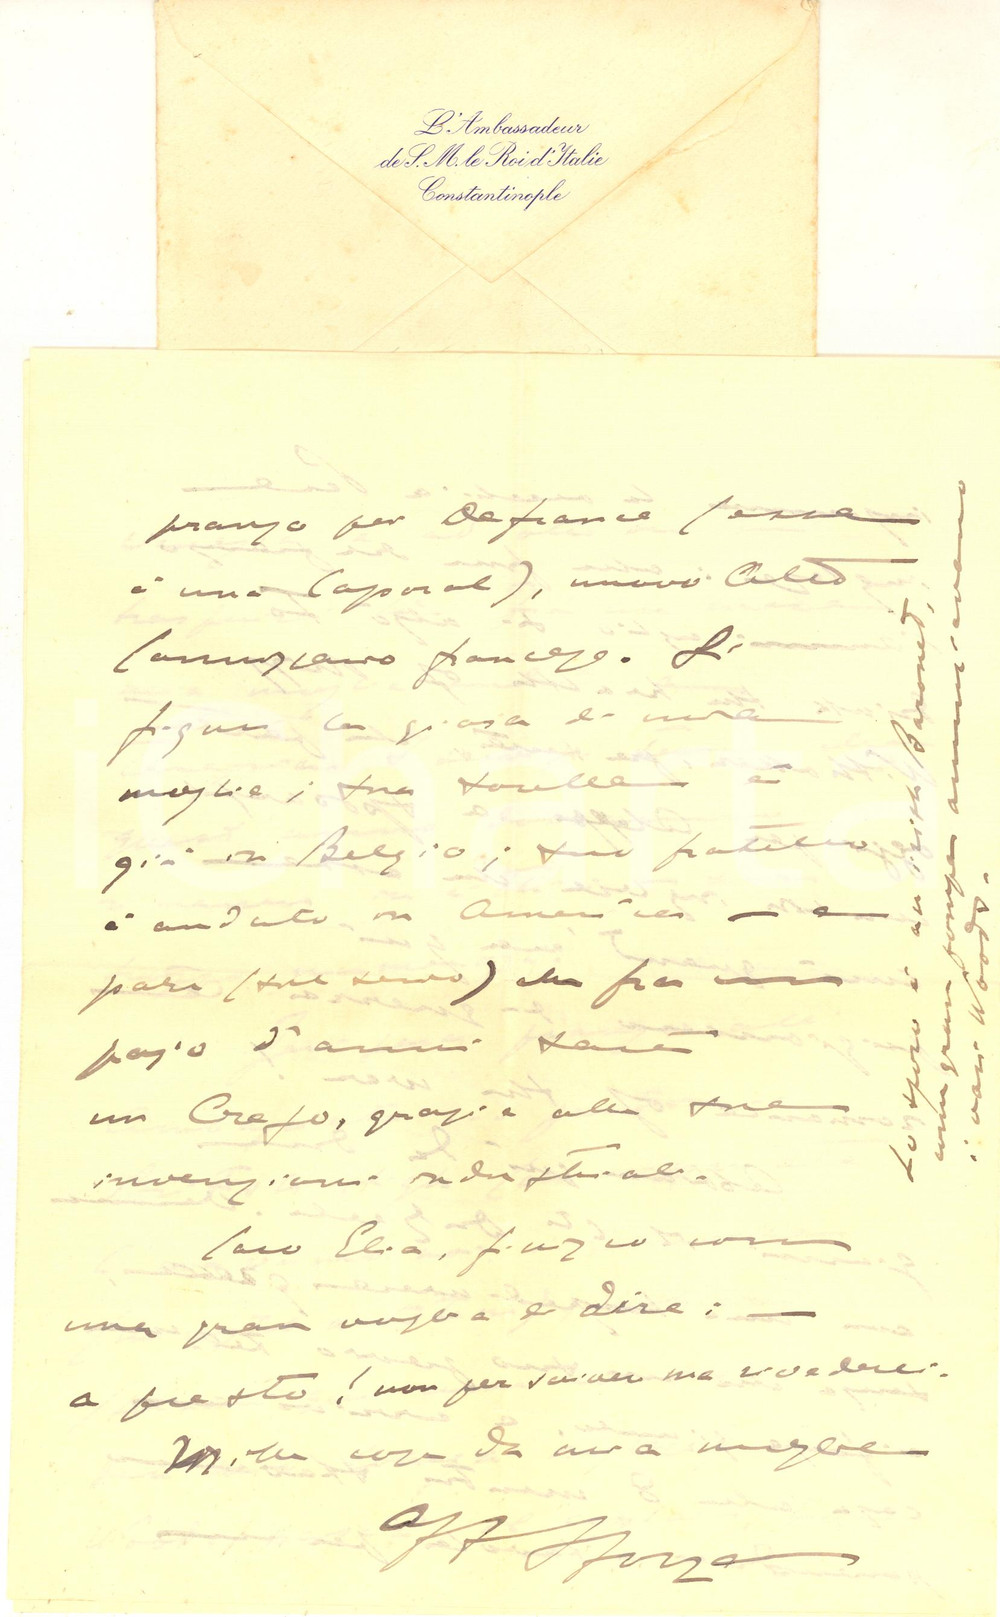 L'Ambassadeur
de S. M. le Roi d'Italie
Constantinople
pranzo per Defrance (essa
è una Caporal), nuovo Alto
Commissario francese. Si
figuri la gioia di mia
moglie; sua sorella è
già in Belgio; suo fratello
è andato in America — e
pare (sul serio) che fra un
pajo d'anni sarà
un Creso, grazie alle sue
invenzioni industriali.
Caro Elia, finisco con
una gran voglia di dire: —
a presto! non per scriver ma rivederci.
Mille cose da mia moglie
Aff Sforza
Lo sposo è un irish Baronet,
come gran pompa annunciavano
i vari Woods.